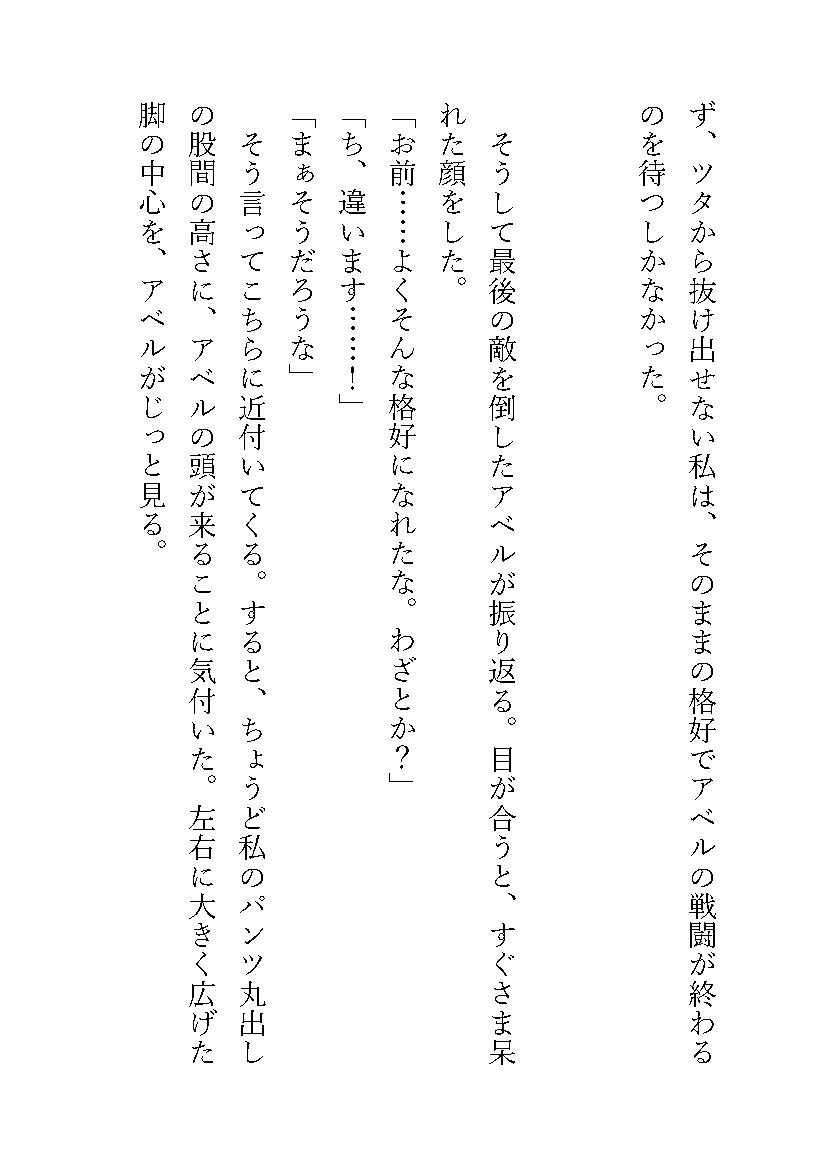 ず、ツタから抜け出せない私は、そのままの格好でアベルの戦闘が終わる
のを待つしかなかった。
そうして最後の敵を倒したアベルが振り返る。目が合うと、すぐさま呆
れた顔をした。
「お前……よくそんな格好になれたな。わざとか？」
「ち、違います……！」
「まぁそうだろうな」
そう言ってこちらに近付いてくる。すると、ちょうど私のパンツ丸出し
の股間の高さに、アベルの頭が来ることに気付いた。左右に大きく広げた
脚の中心を、アベルがじっと見る。